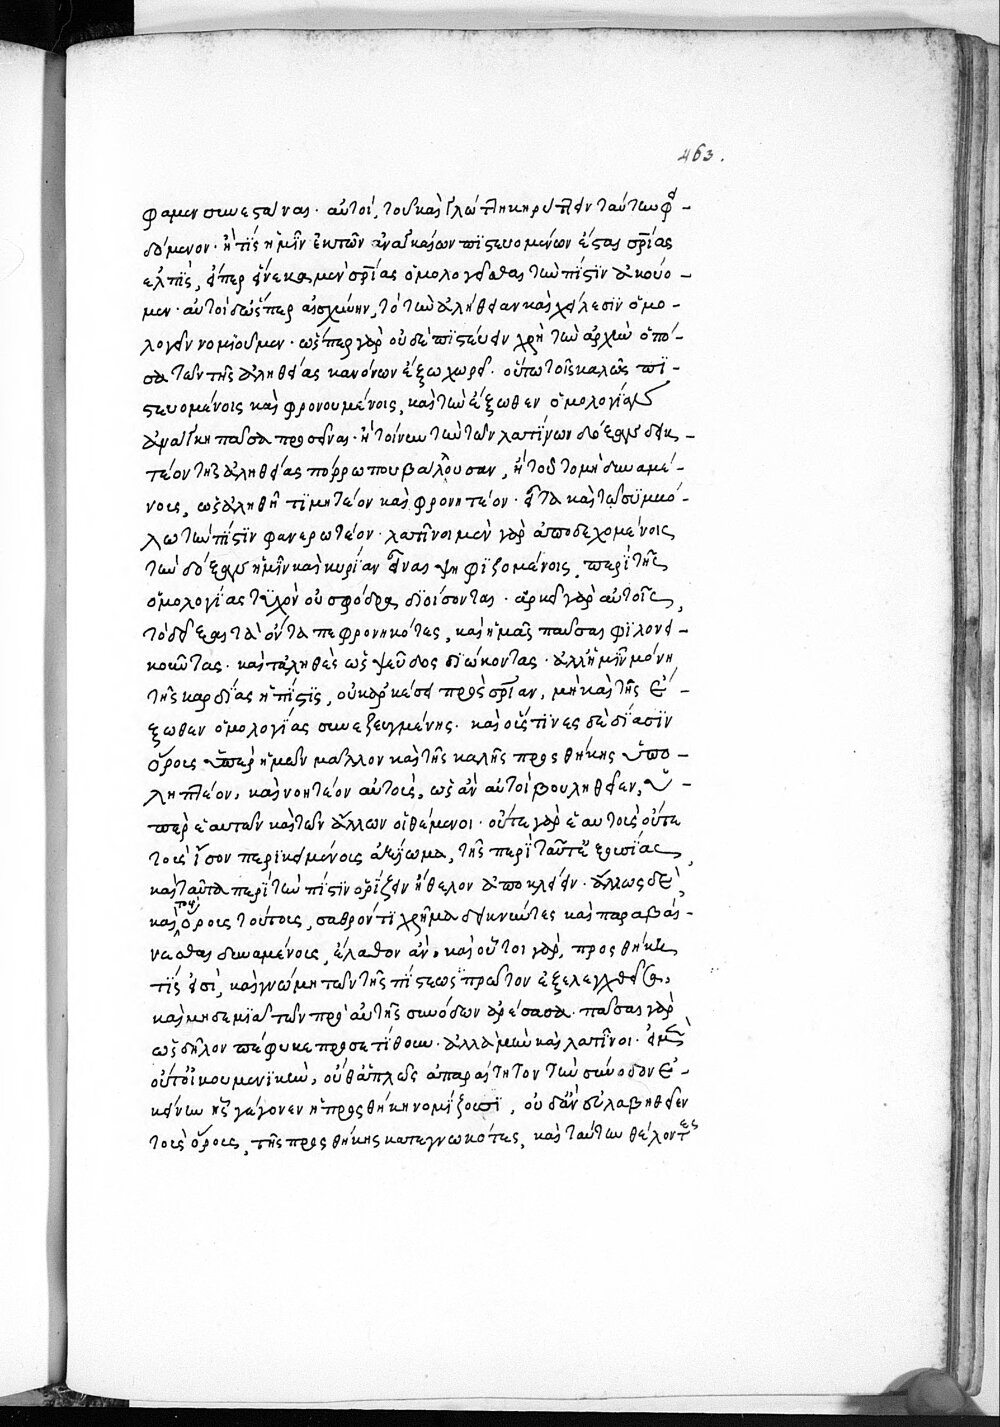 463.
φαμεν συνεστάναι· αὐτοί, τοῦ καὶ γλώττῃ κηρύττειν ταύτην φει-
δόμενοι· ἢ τίς ἡμῖν ἐκ τῶν ἀναγκαίων πιστευομένων ἔσται σωτηρίας
ἐλπίς, εἴπερ ἕνεκα μὲν σωτηρίας ὁμολογεῖσθαι τὴν πίστιν ἀκούο-
μεν· αὐτοὶ δ' ὥσπερ αἰσχύνην, τὸ τὴν ἀλήθειαν καὶ χείλεσιν ὁμο-
λογεῖν νομιοῦμεν· ὥσπερ γὰρ οὐδὲ πιστεύειν χρὴ τὴν ἀρχὴν ὁπό-
σα τῶν τῆς ἀληθείας κανόνων ἔξω χωρεῖ· οὕτω τοῖς καλῶς πι-
στευομένοις καὶ φρονουμένοις, καὶ τὴν ἔξωθεν ὁμολογίαν
ἀνάγκη πᾶσα προσεῖναι· ἢ τοίνυν τὴν τῶν λατίνων δόξαν δεικ-
τέον τῆς ἀληθείας πόρρω που βάλλουσαν, ἢ τοῦτο μὴ δυναμέ-
νοις, ὡς ἀληθῆ τιμητέον καὶ φρονητέον· εἶτα καὶ τῷ συμβό-
λω τὴν πίστιν φανερωτέον· λατῖνοι μὲν γὰρ ἀποδεχομένοις
τὴν δόξαν ἡμῖν καὶ κυρίαν εἶναι ψηφιζομένοις, περὶ τῆς
ὁμολογίας τυχὸν οὐ σφόδρα διοίσονται· ἀρκεῖ γὰρ αὐτοῖς,
τὸ δεῖξαι τὰ ὄντα πεφρονηκότας, καὶ ἡμᾶς παῦσαι φιλονει-
κοῦντας· καὶ τἀληθὲς ὡς ψεῦδος διώκοντας· ἀλλ' ἡμῖν μόνη
τῆς καρδίας ἡ πίστις, οὐκ ἀρκέσει πρὸς σωτηρίαν, μὴ καὶ τῆς ἔ-
ξωθεν ὁμολογίας συνεζευγμένης· καὶ οἵτινες δὲ δίασιν
ὅροις ὑπὲρ ἡμῶν μᾶλλον καὶ τῆς καλῆς προσθήκης ὑπο-
ληπτέον, καὶ νοητέον αὐτοὺς, ὡς ἂν αὐτοὶ βουληθεῖεν, ὑ-
πὲρ ἑαυτῶν καὶ τῶν ἄλλων οἱ θέμενοι· οὔτε γὰρ ἑαυτοῖς οὔτε
τοῖς ἴσον περικειμένοις ἀξίωμα, τῆς περὶ ταῦτ' ἐξουσίας,
καὶ ταῦτα περὶ τὴν πίστιν ὁρίζειν ἤθελον ἀποκλείειν· ἄλλως δὲ,
καὶ τοὺς ὅροις τούτοις, σαθρόν τι χρῆμα δεικνῦντες καὶ παραβαί-
νεσθαι δυναμένοις, ἔλαθον ἄν, καὶ οὗτοι γὰρ, προσθήκη
τίς εἰσὶ, καὶ γνώμη τῶν τῆς πίστεως πρῶτον ἐξελεγχθεῖσα,
καὶ μηδεμιᾷ τῶν πρὸ αὐτῆς συνόδων ἀρέσασα· πᾶσαι γὰρ
ὡς δῆλον πέφυκε προσετίθουν· ἀλλὰ μὴν καὶ λατῖνοι· εἰ μὴ
οὕτω οἰκουμενικὴν, οὔθ' ἁπλῶς ἀπαραίτητον τὴν σύνοδον ἐ-
κείνων ἧς γέγονεν ἡ προσθήκη νομίζουσι, οὐδ' ἂν εὐλαβηθεῖεν
τοῖς ὅροις, τῆς προσθήκης κατεγνωκότας, καὶ ταύτην θέλοντες